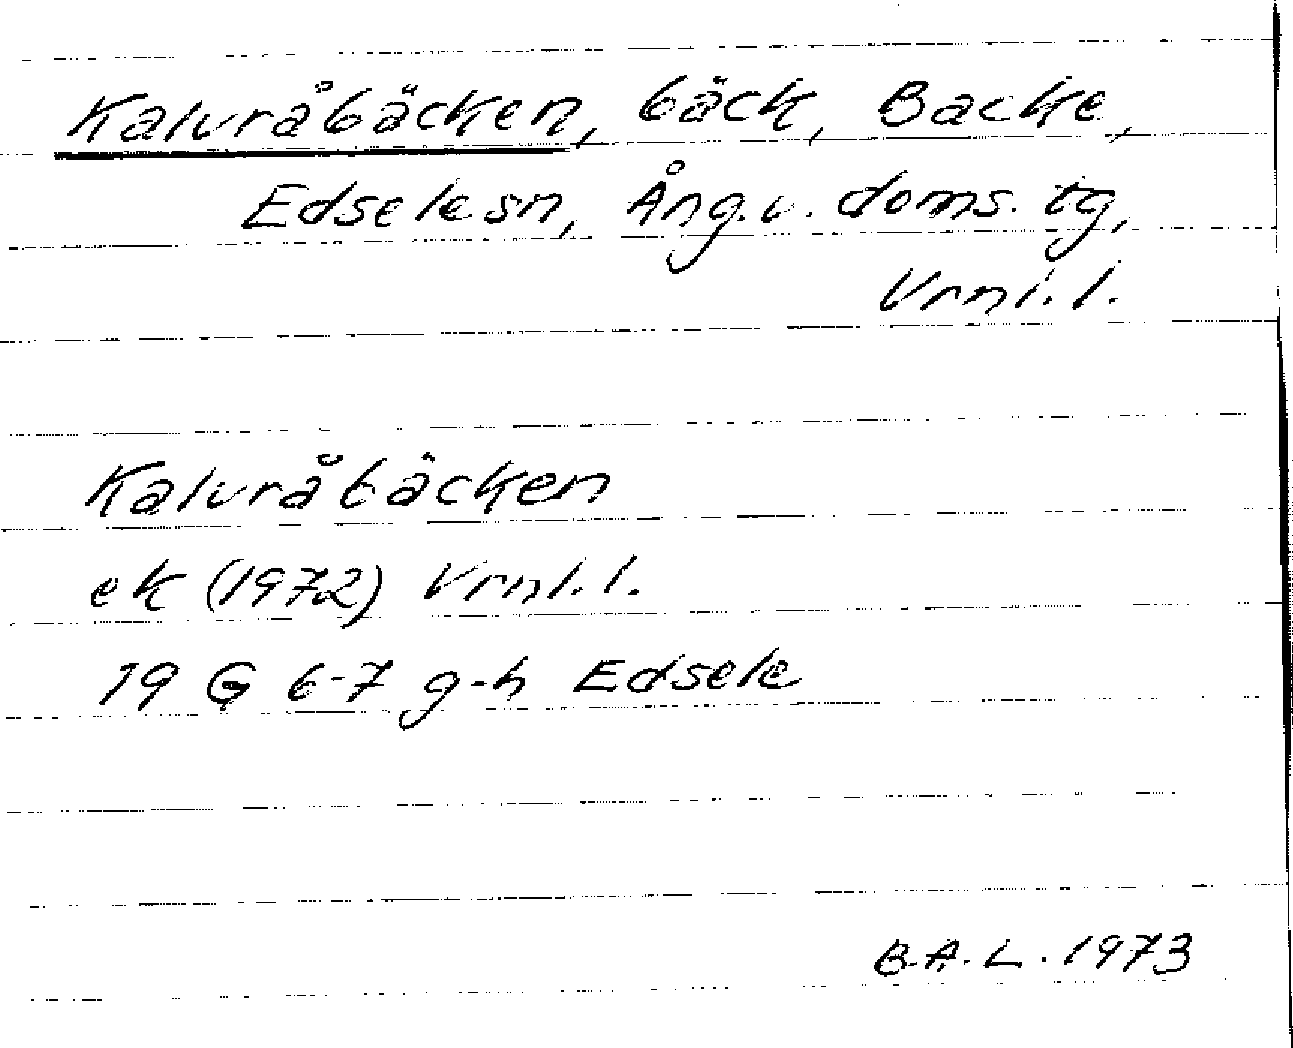 Kalvråbäcken, bäck, Backe,
Edsele sn, Ång. v. doms. tg,
Vrnl. l.
Kalvråbäcken
ek (1972) Vrnl. l.
19 G 6-7 g-h Edsele
B.A.L. 1973